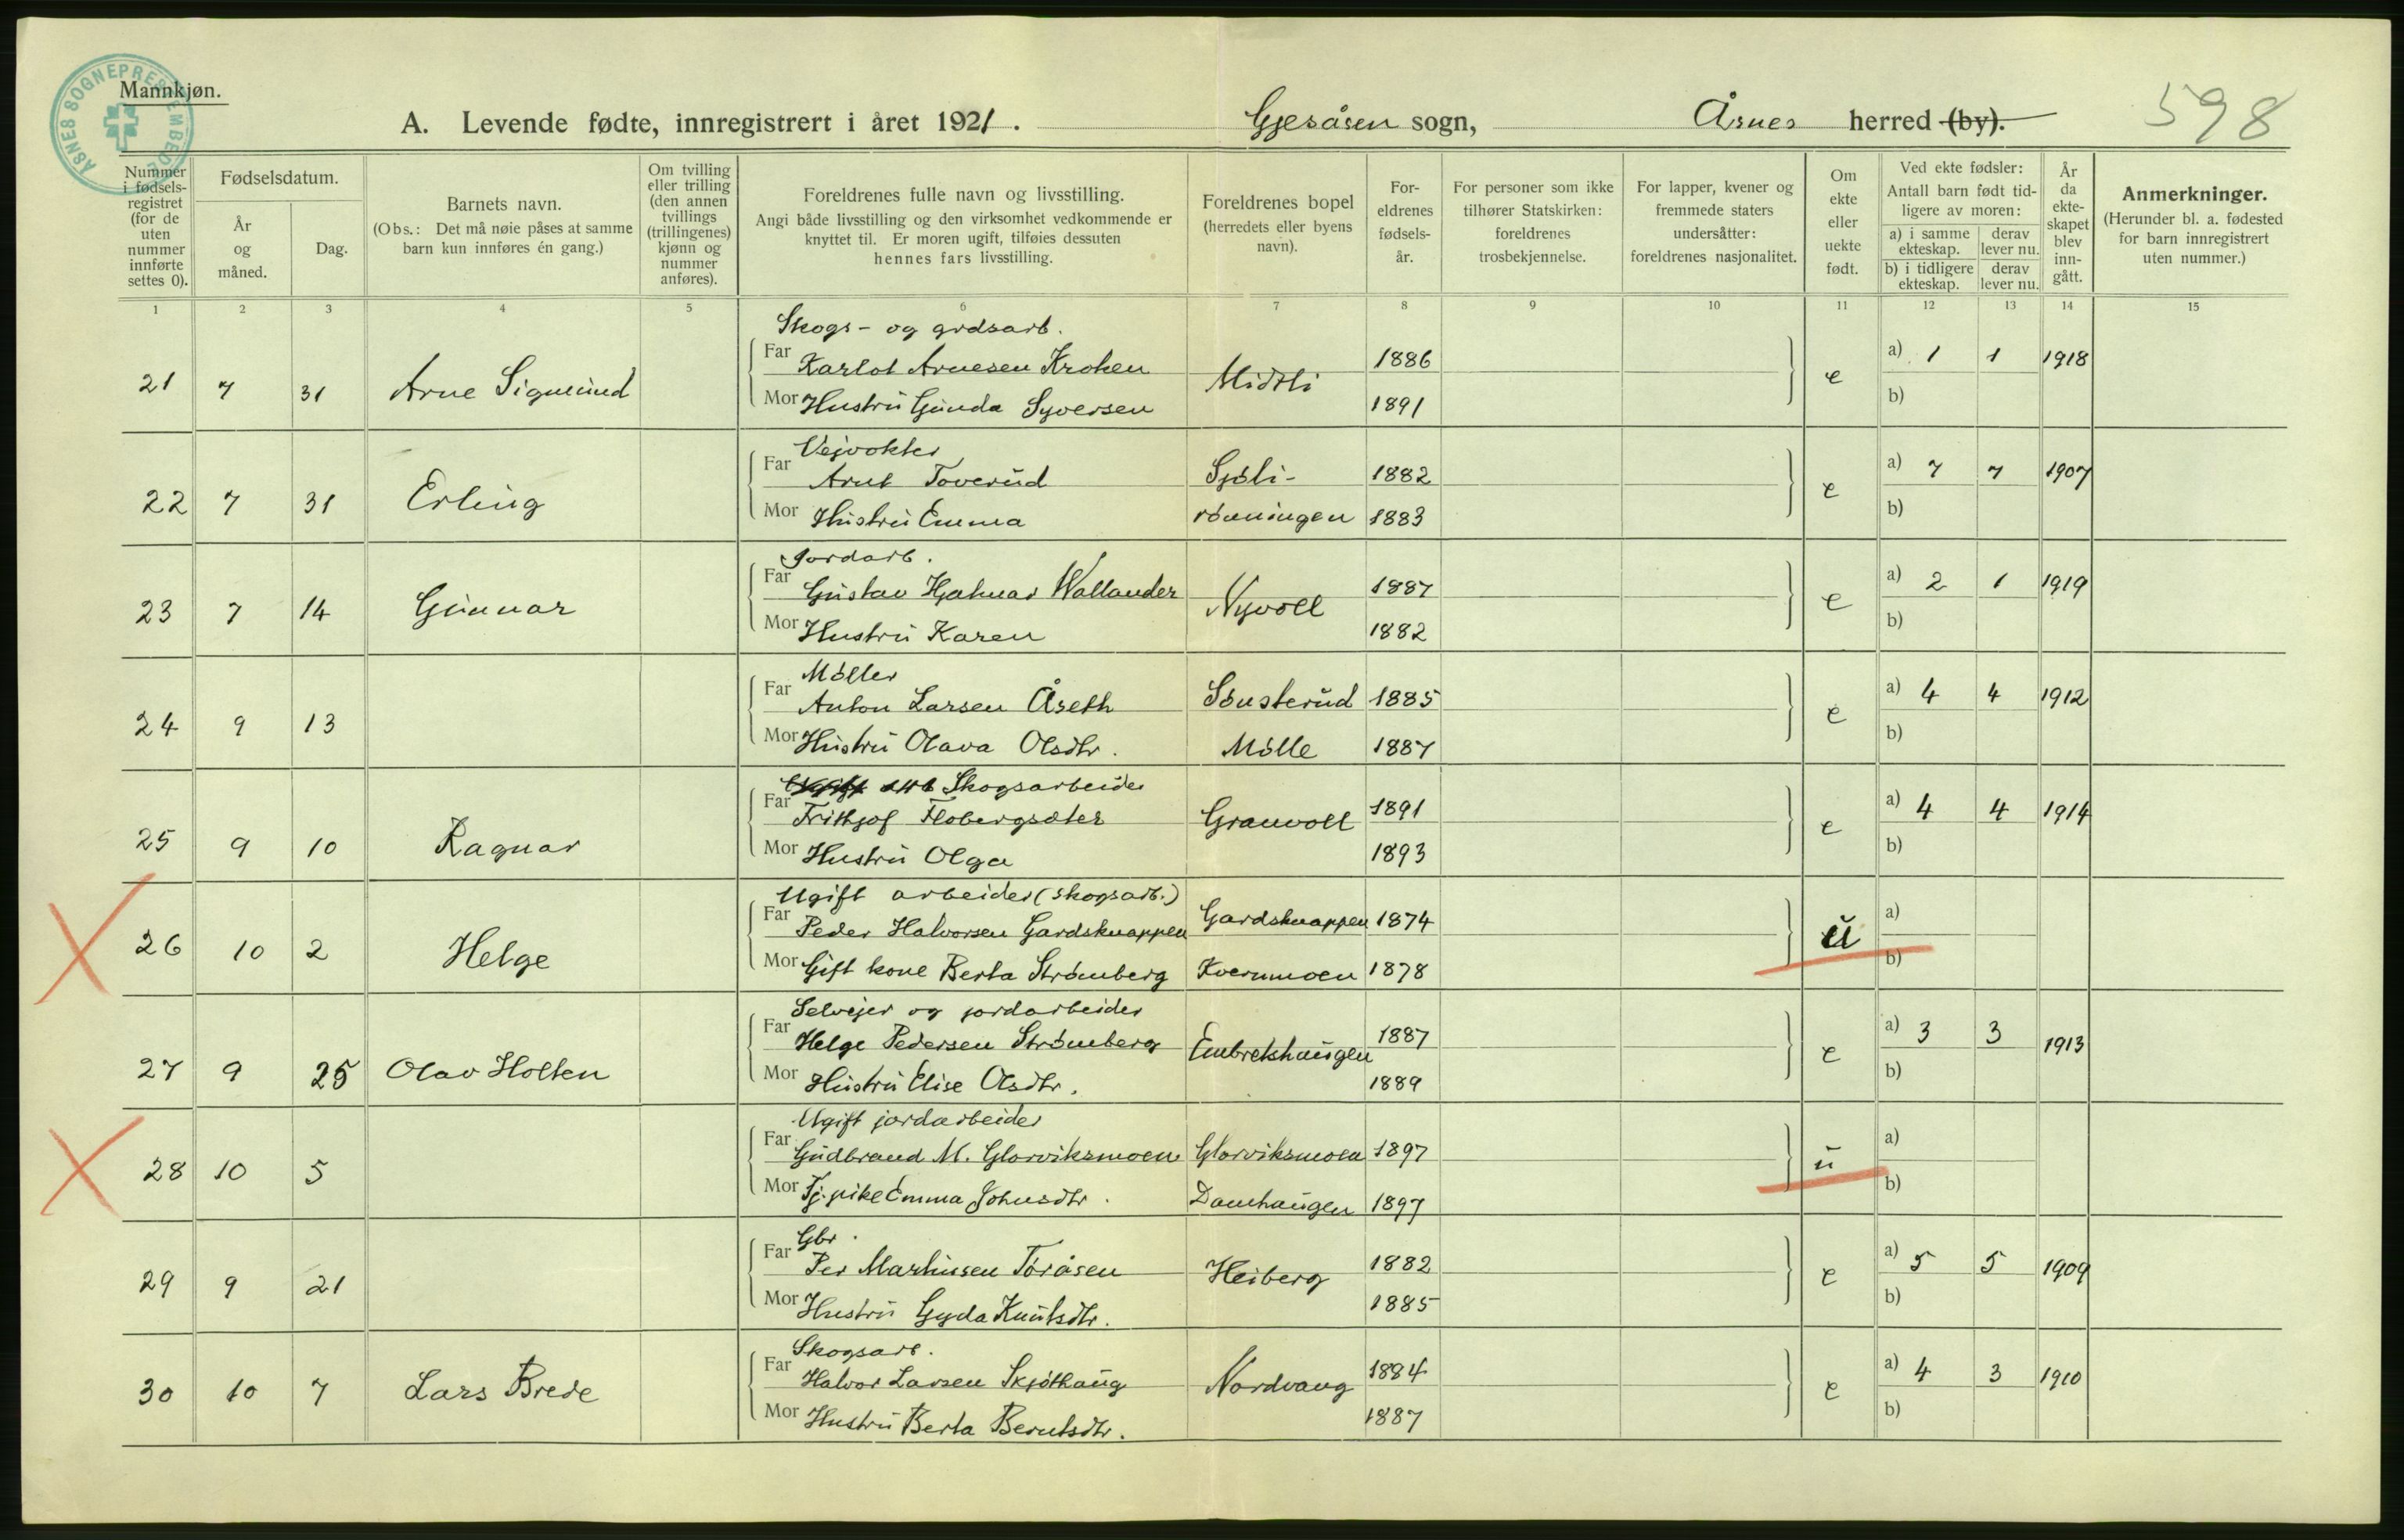 ÅSNES SOGNEPRESTEMBEDE
Mannkjøn.
A. Levende fødte, innregistrert i året 1921. Gjesåsen sogn, Åsnes herred (by). 598
Nummer i fødselsregistret (for de uten nummer innførte settes 0).
Fødselsdatum.
År og måned.
Dag.
Barnets navn.
(Obs.: Det må nøie påses at samme barn kun innføres én gang.)
Om tvilling eller trilling (den annen tvillings (trillingenes) kjønn og nummer anføres).
Foreldrenes fulle navn og livsstilling.
Angi både livsstilling og den virksomhet vedkommende er knyttet til. Er moren ugift, tilføies dessuten hennes fars livsstilling.
Foreldrenes bopel (herredets eller byens navn).
Foreldrenes fødselsår.
For personer som ikke tilhører Statskirken: foreldrenes trosbekjennelse.
For lapper, kvener og fremmede staters undersåtter: foreldrenes nasjonalitet.
Om ekte eller uekte født.
Ved ekte fødsler: Antall barn født tidligere av moren:
a) i samme ekteskap. derav lever nu.
b) i tidligere ekteskap. derav lever nu.
År da ekteskapet blev inngått.
Anmerkninger.
(Herunder bl. a. fødested for barn innregistrert uten nummer.)
1 2 3 4 5 6 7 8 9 10 11 12 13 14 15
Skogs- og grdsarb.
21 7 31 Arne Sigmund Far Karlot Arnesen Kroken Midtli 1886 e a) 1 1 1918
Mor Hustru Gunda Syversen 1891 b)
Vejvokter
22 7 31 Erling Far Arnt Toverud Sjøli- 1882 e a) 7 7 1907
Mor Hustru Emma rønningen 1883 b)
Jordarb.
23 7 14 Gunnar Far Gustav Hjalmar Wallander Nyvoll 1887 e a) 2 1 1919
Mor Hustru Karen 1882 b)
Møller
24 9 13 Far Anton Larsen Åseth Sønsterud 1885 e a) 4 4 1912
Mor Hustru Olava Olsdtr. Mølle 1887 b)
Skogsarbeider
25 9 10 Ragnar Far Frithjof Flobergsæter Granvoll 1891 e a) 4 4 1914
Mor Hustru Olga 1893 b)
Ugift arbeider (skogsarb.)
26 10 2 Helge Far Peder Halvorsen Gardsknappen Gardsknappen 1874 u a)
Mor Gift kone Berta Strømberg Kvernmoen 1878 b)
Selvejer og jordarbeider
27 9 25 Olav Holten Far Helge Pedersen Strømberg Embretshaugen 1887 e a) 3 3 1913
Mor Hustru Elise Olsdtr. 1889 b)
Ugift jordarbeider
28 10 5 Far Gudbrand M. Glorviksmoen Glorviksmoen 1897 u a)
Mor Tj.pike Emma Johnsdtr. Damhaugen 1897 b)
Gbr.
29 9 21 Far Per Martinsen Toråsen Heiberg 1882 e a) 5 5 1909
Mor Hustru Gyda Knutsdtr. 1885 b)
Skogsarb.
30 10 7 Lars Brede Far Halvor Larsen Skjøthaug Nordvang 1884 e a) 4 3 1910
Mor Hustru Berta Berntsdtr. 1887 b)